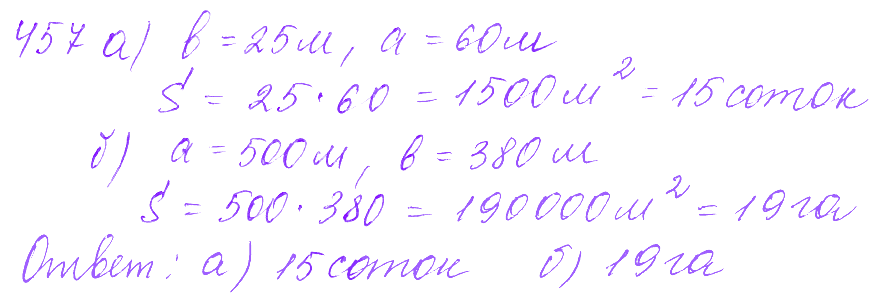 457 а) в = 25 м, а = 60 м
S = 25 · 60 = 1500 м² = 15 соток
б) а = 500 м, в = 380 м
S = 500 · 380 = 190000 м² = 19 га
Ответ: а) 15 соток б) 19 га